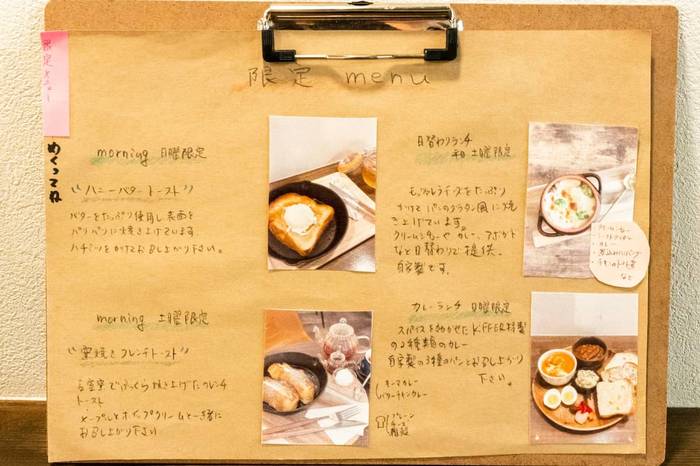 限定 menu
限定メニュー
めくってね
morning 日曜限定
"ハニーバタートースト"
バターをたっぷり使用し表面を
パリパリに焼き上げています。
ハチミツをかけてお召し上がり下さい。
morning 土曜限定
"窯焼きフレンチトースト"
石窯でふっくら焼き上げたフレンチ
トースト
メープルとホイップクリームと一緒に
お召し上がり下さい
日替わりランチ
土曜限定
モッツァレラチーズをたっぷり
かけてパンのグラタン風に焼
き上げています。
クリームシチューやカレー、
など日替わりで提供。
自家製です。
カレー
など
カレーランチ 日曜限定
スパイスを効かせたKIFFER特製
の2種類のカレー
自家製の3種のパンとお召し上がり
下さい。
キーマカレー
バターチキンカレー
プレーン
チーズ